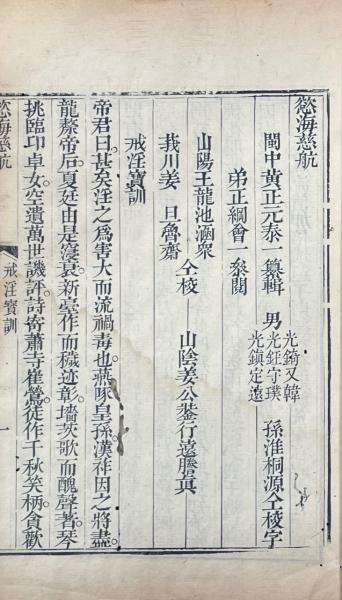 慾海慈航
閩中黃正元泰一纂輯 男光錡又韓 光鉦守璞 光鎮定遠 孫淮桐源仝校字
弟正綱會一叅閱
山陽王龍池涵衆
莪川姜旦魯齋 仝校 山陰姜公鋆行遠謄眞
戒淫寶訓
帝君曰甚矣淫之爲害大而流禍毒也燕啄皇孫漢祚因之將盡
龍漦帝后夏廷由是寖衰新臺作而穢迹彰墻茨歌而醜聲著琴
挑臨邛卓女空遺萬世譏評詩寄蕭寺崔鶯徒作千秋笑柄貪歡
慾海慈航
戒淫寶訓
一